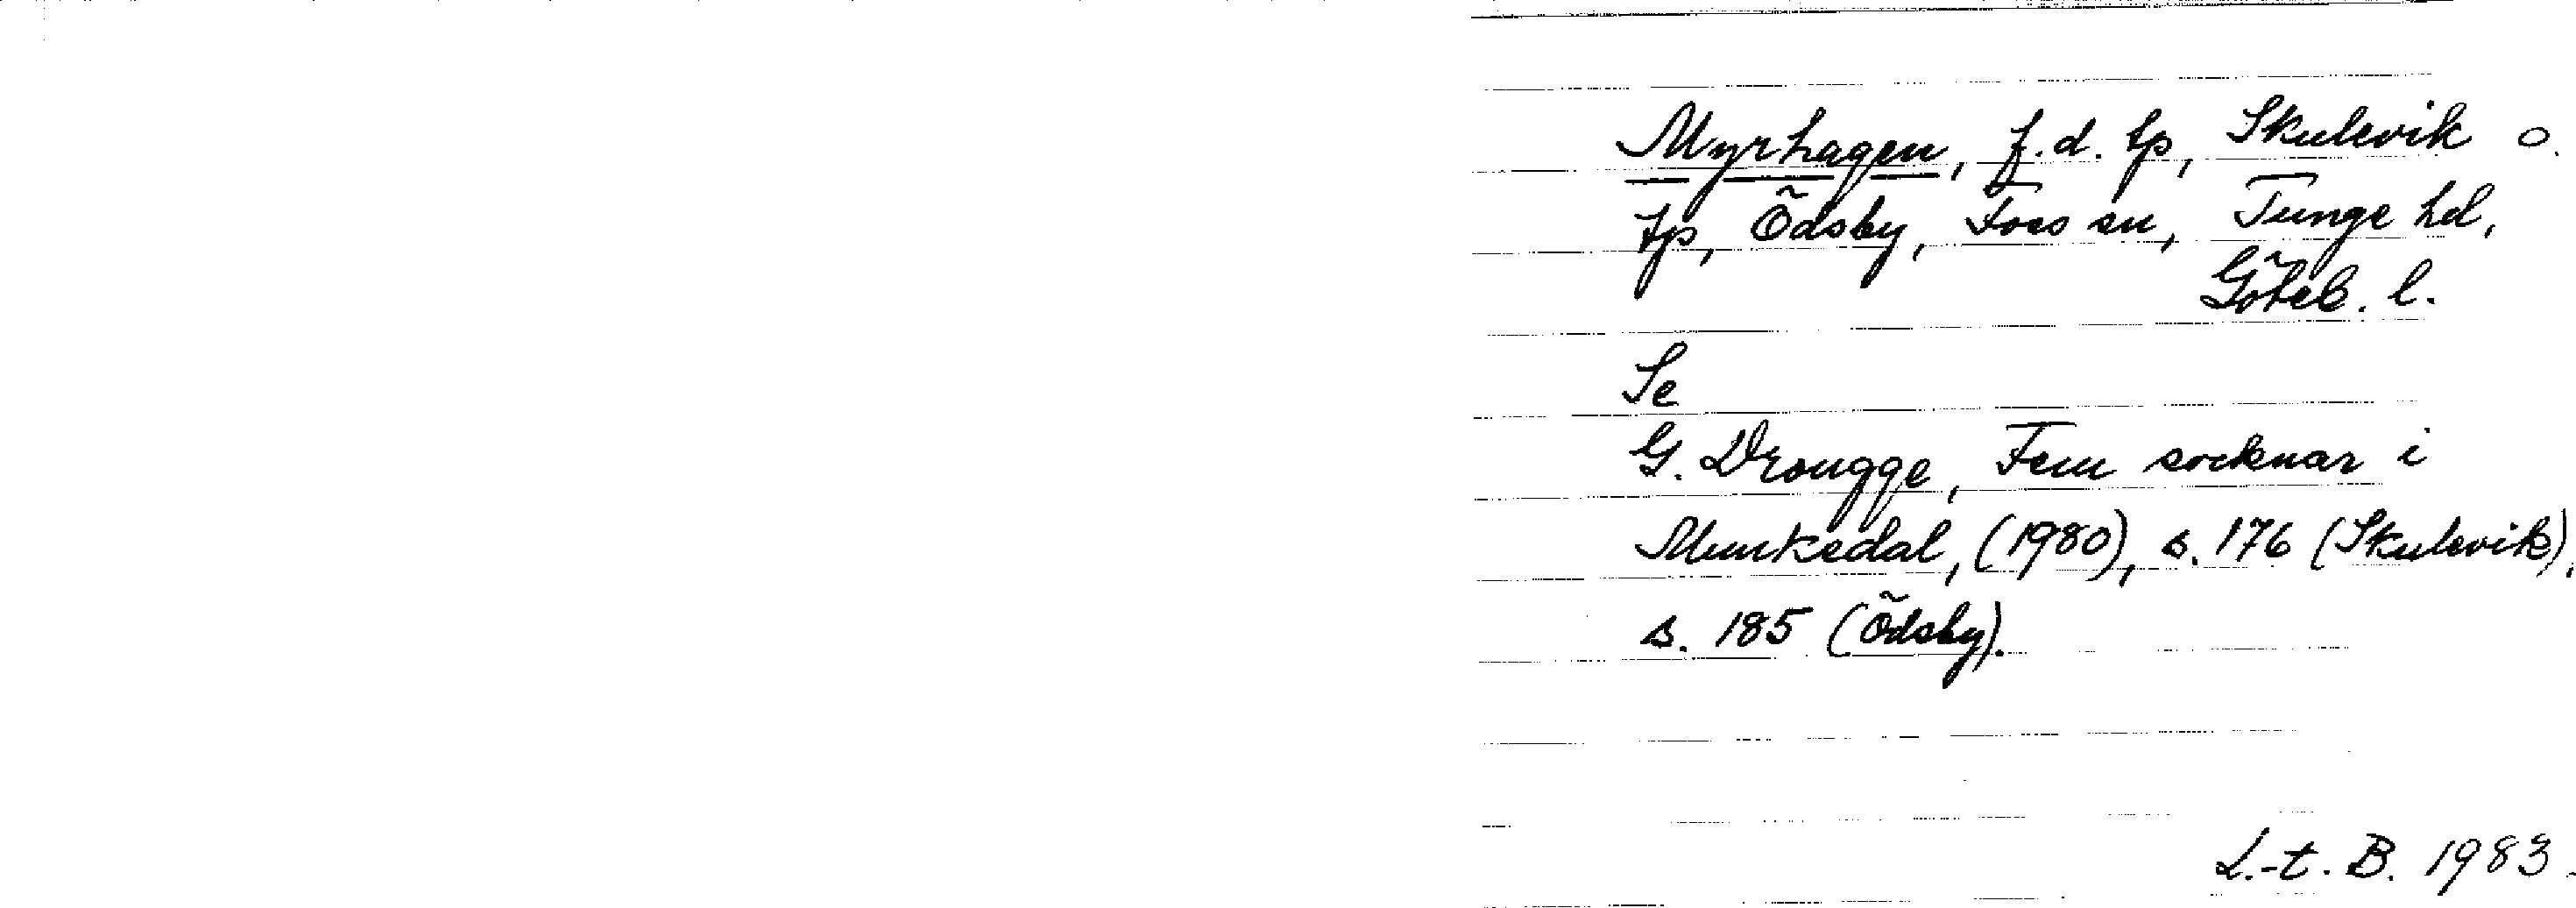 Myrhagen, f.d. tp, Skulevik o.
tp, Ödsby, Foss sn, Tunge hd,
Göteb. l.
Se
G. Drougge, Fem socknar i
Munkedal, (1980), s. 176 (Skulevik),
s. 185 (Ödsby).
L.-t. B. 1983.